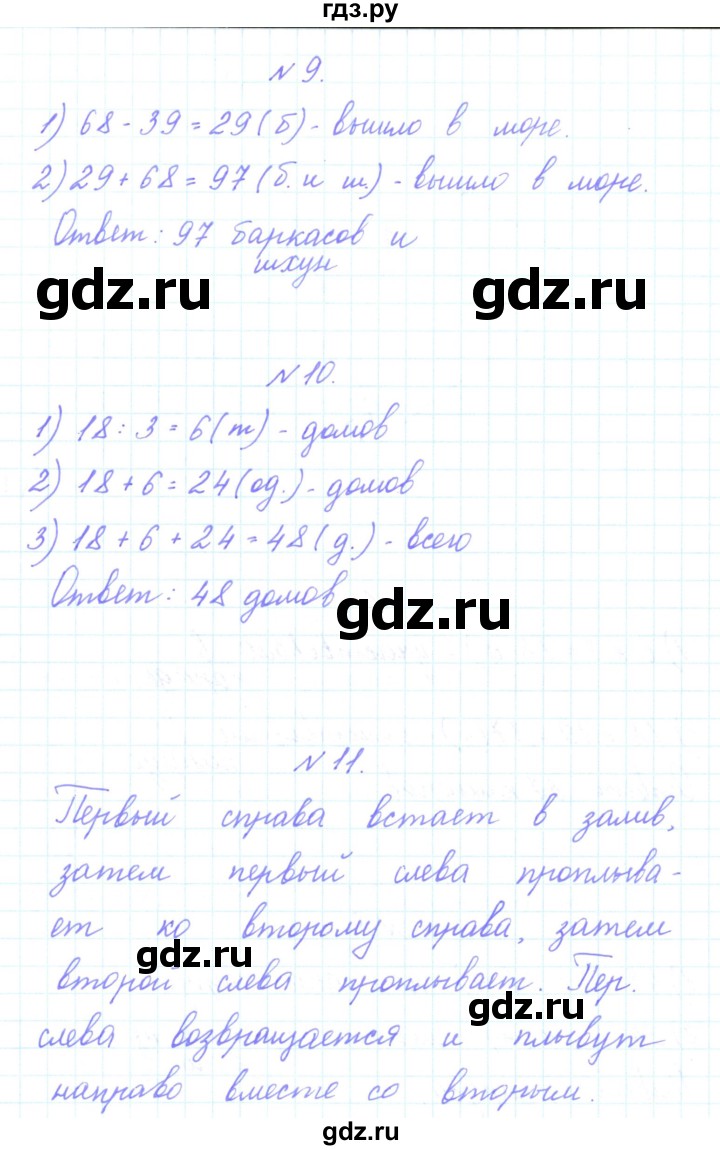 гдз.ру
N 9.
1) 68 - 39 = 29 (б) - вышло в море.
2) 29 + 68 = 97 (б. и ш.) - вышло в море.
Ответ: 97 баркасов и
шхун
gdz.ru gdz.ru
N 10.
1) 18 : 3 = 6 (т) - домов
2) 18 + 6 = 24 (од.) - домов
3) 18 + 6 + 24 = 48 (д.) - всего
Ответ: 48 домов
gdz.ru
N 11.
Первый справа встает в залив,
затем первый слева проплыва-
ет ко второму справа, затем
gdz.ru
второй слева проплывает. Пер.
gdz.ru
слева возвращается и плывут
направо вместе со вторым.
gdz.ru